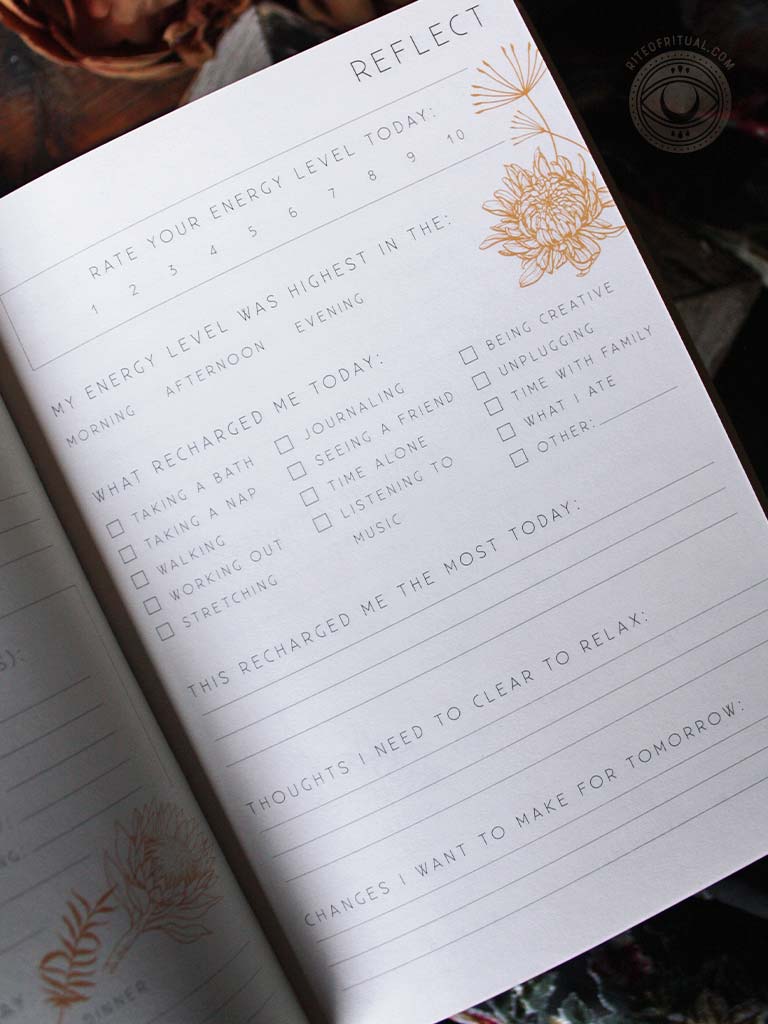 RITEOFRITUAL.COM
REFLECT
RATE YOUR ENERGY LEVEL TODAY:
1 2 3 4 5 6 7 8 9 10
MY ENERGY LEVEL WAS HIGHEST IN THE:
MORNING AFTERNOON EVENING
WHAT RECHARGED ME TODAY:
TAKING A BATH
TAKING A NAP
WALKING
WORKING OUT
STRETCHING
JOURNALING
SEEING A FRIEND
TIME ALONE
LISTENING TO
MUSIC
BEING CREATIVE
UNPLUGGING
TIME WITH FAMILY
WHAT I ATE
OTHER:
THIS RECHARGED ME THE MOST TODAY:
THOUGHTS I NEED TO CLEAR TO RELAX:
CHANGES I WANT TO MAKE FOR TOMORROW:
DINNER